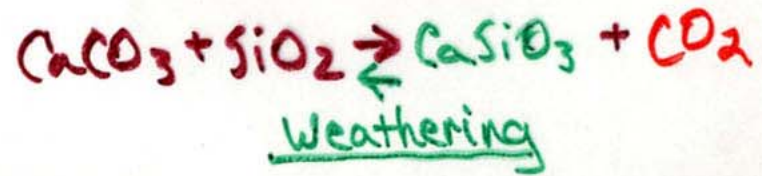 CaCO₃ + SiO₂ ⇄ CaSiO₃ + CO₂
Weathering